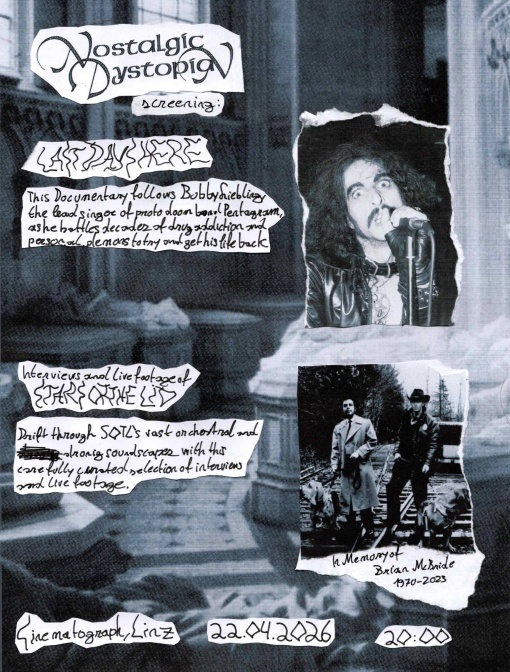 Nostalgic
Dystopia
screening:
LAST DAYS HERE
This Documentary follows Bobby Liebling
the lead singer of proto doom band Pentagram,
as he battles decades of drug addiction and
personal demons to try and get his life back
Interviews and live footage of
STARS OF THE LID
Drift through SOTL's vast orchestral and
droning soundscapes with this
carefully curated selection of interviews
and live footage.
In Memory of
Brian McBride
1970-2023
Cinematograph, Linz
22.04.2026
20:00